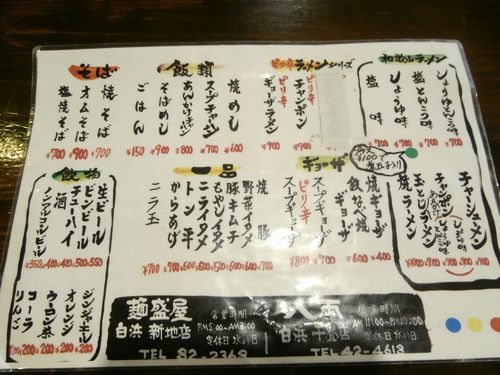 和歌山ラメン
しょうゆとんこつ味
塩とんこつ味
しょうゆ味
塩味
¥700
¥700
ピリ辛ラメンシリーズ
ピリ辛
チャンポン
ピリ辛
ギョーザラメン
¥900
¥900
飯類
焼めし
スープチャーハン
あんかけチャーハン
そばめし
ごはん
¥600
¥700
¥800
¥900
¥150
そば
焼そば
オムそば
塩焼そば
¥700
¥900
¥700
チャーシューメン
チャンポン
玉とじラーメン
焼ラーメン
ギョーザ
焼ギョーザ
飯なべ焼ギョーザ
スープギョーザ
ピリ辛
スープギョーザ
一品
焼豚
野菜イタメ
豚キムチ
もやしイタメ
ニライタメ
トン平
からあげ
ニラ玉
飲物
生ビール
ビンビール
チューハイ
酒
ノンアルコールビール
550
500
400
400
350
ジンジャエール
オレンジ
ウーロン茶
コーラ
りんご
200
200
200
200
200
麺盛屋
白浜 新地店
営業時間
PM5:00~AM3:00
定休日
TEL 82-2368
八両
白浜
営業時間
定休日
TEL 42-4618